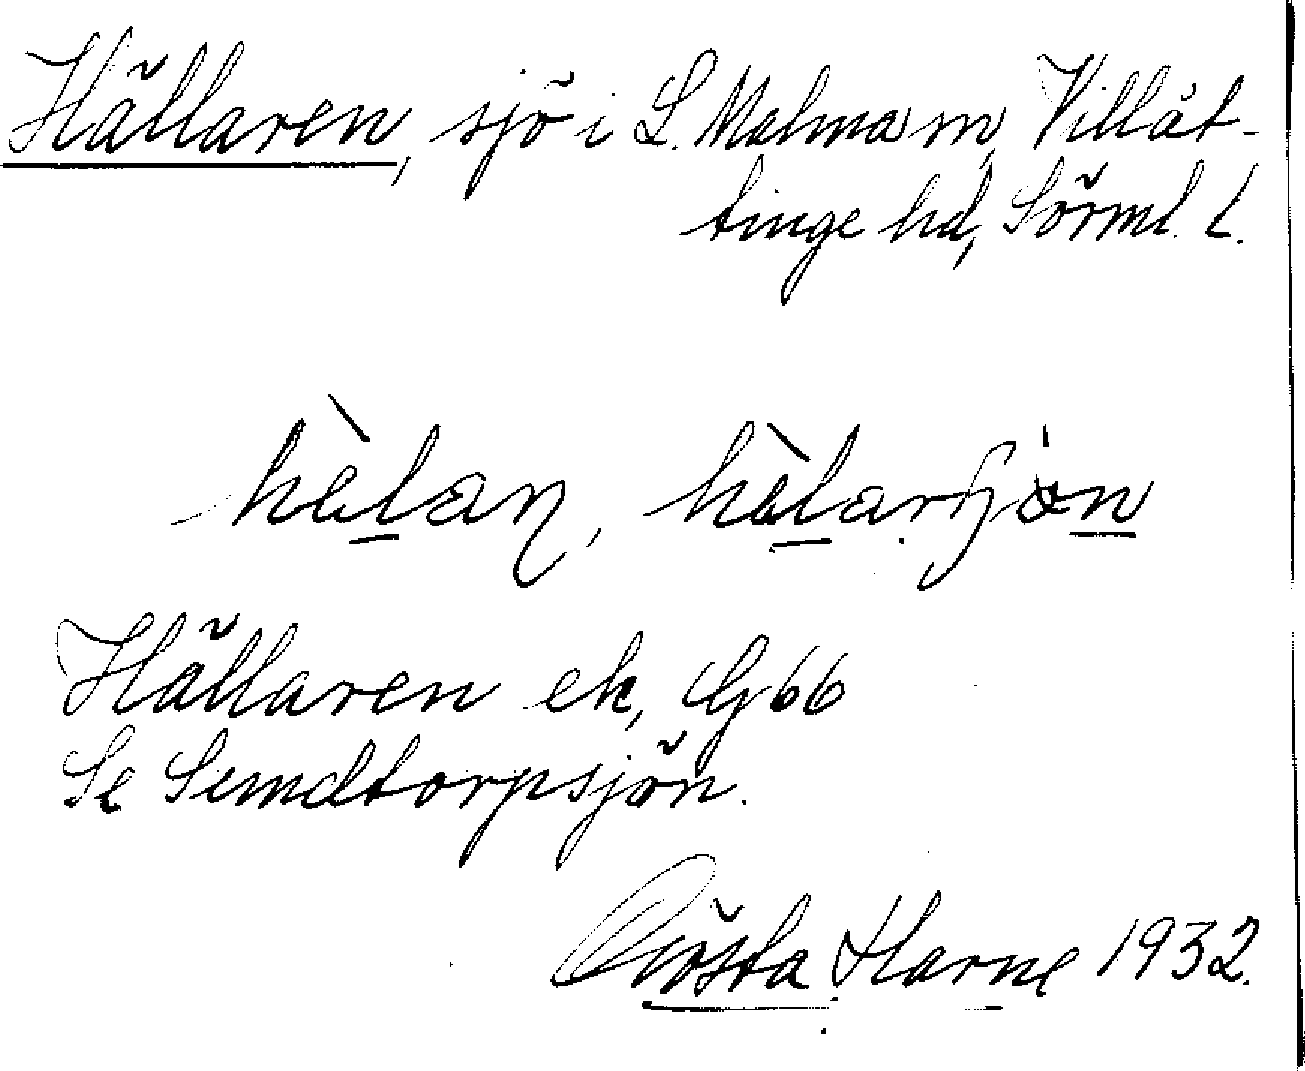 Hällaren, sjö i L. Malma sn, Villåt-
tinge hd, Sörml. l.
hèlan, hèlarsjön
Hällaren ek, G 66
Se Sundtorpsjön.
Gösta Harne 1932.